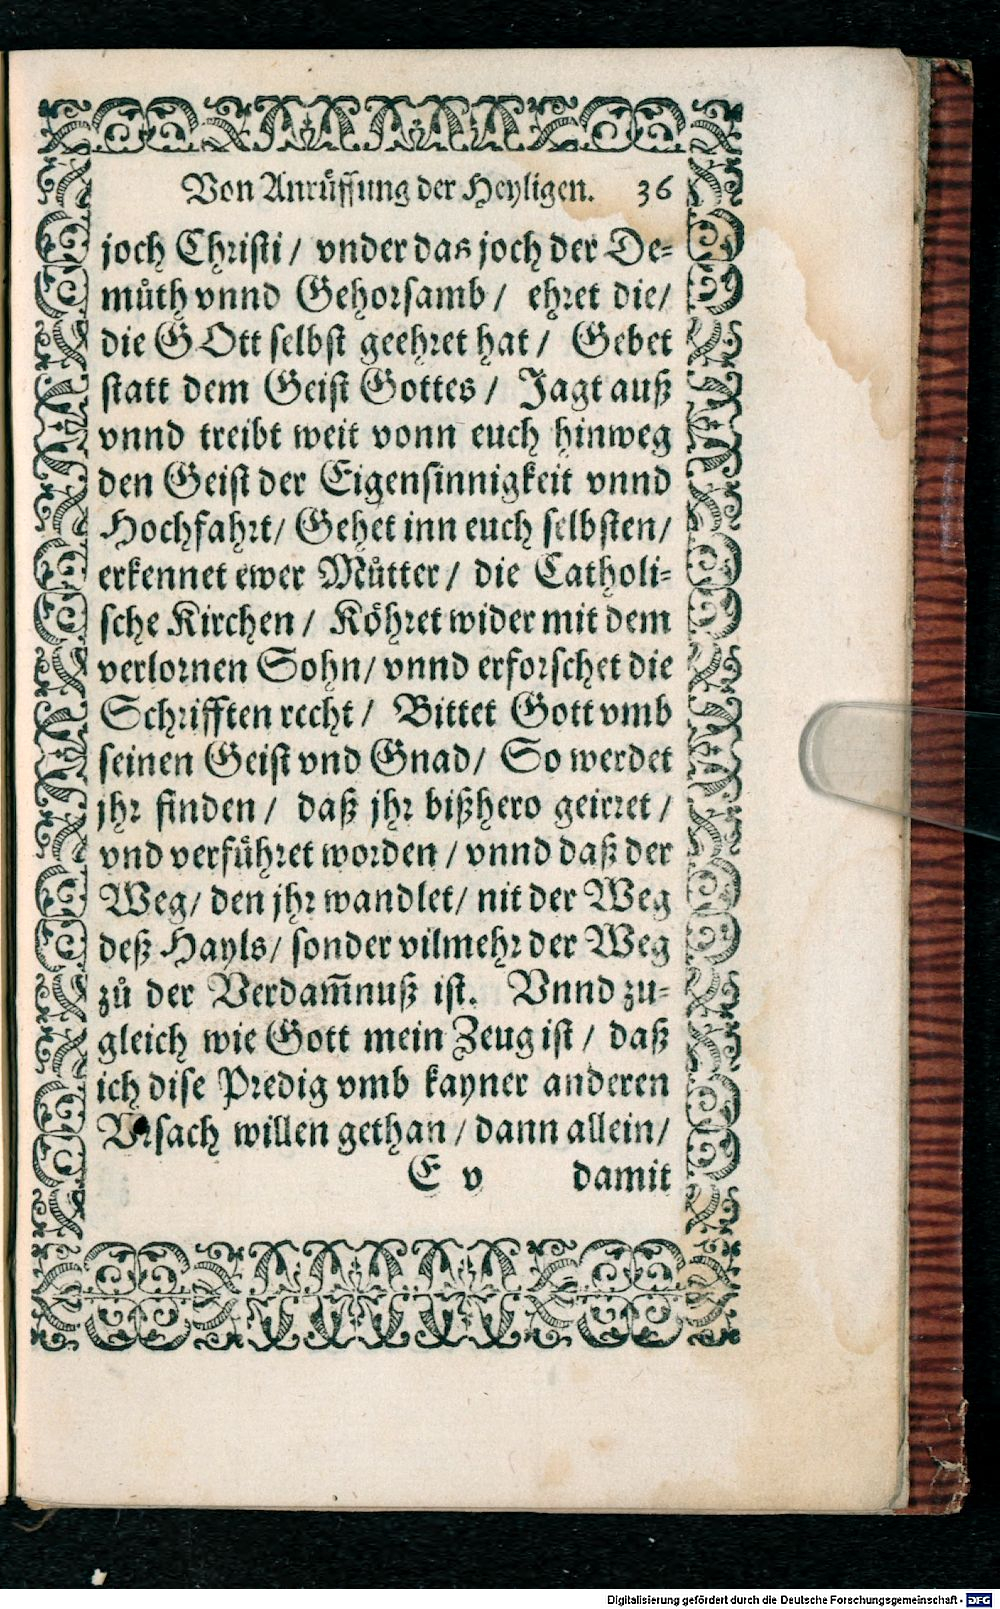 Von Anrůffung der Heyligen. 36
joch Christi / vnder das joch der De⸗
můth vnnd Gehorsamb / ehret die/
die GOtt selbst geehret hat / Gebet
statt dem Geist Gottes / Jagt auß
vnnd treibt weit vonn euch hinweg
den Geist der Eigensinnigkeit vnnd
Hochfahrt/ Gehet inn euch selbsten/
erkennet ewer Můtter / die Catholi⸗
sche Kirchen / Köhret wider mit dem
verlornen Sohn/ vnnd erforschet die
Schrifften recht / Bittet Gott vmb
seinen Geist vnd Gnad/ So werdet
jhr finden / daß jhr bißhero geirret /
vnd verführet worden / vnnd daß der
Weg/ den jhr wandlet/ nit der Weg
deß Hayls/ sonder vilmehr der Weg
zů der Verdam̃nuß ist. Vnnd zu⸗
gleich wie Gott mein Zeug ist / daß
ich dise Predig vmb kayner anderen
Vrsach willen gethan / dann allein/
E v damit
Digitalisierung gefördert durch die Deutsche Forschungsgemeinschaft - DFG